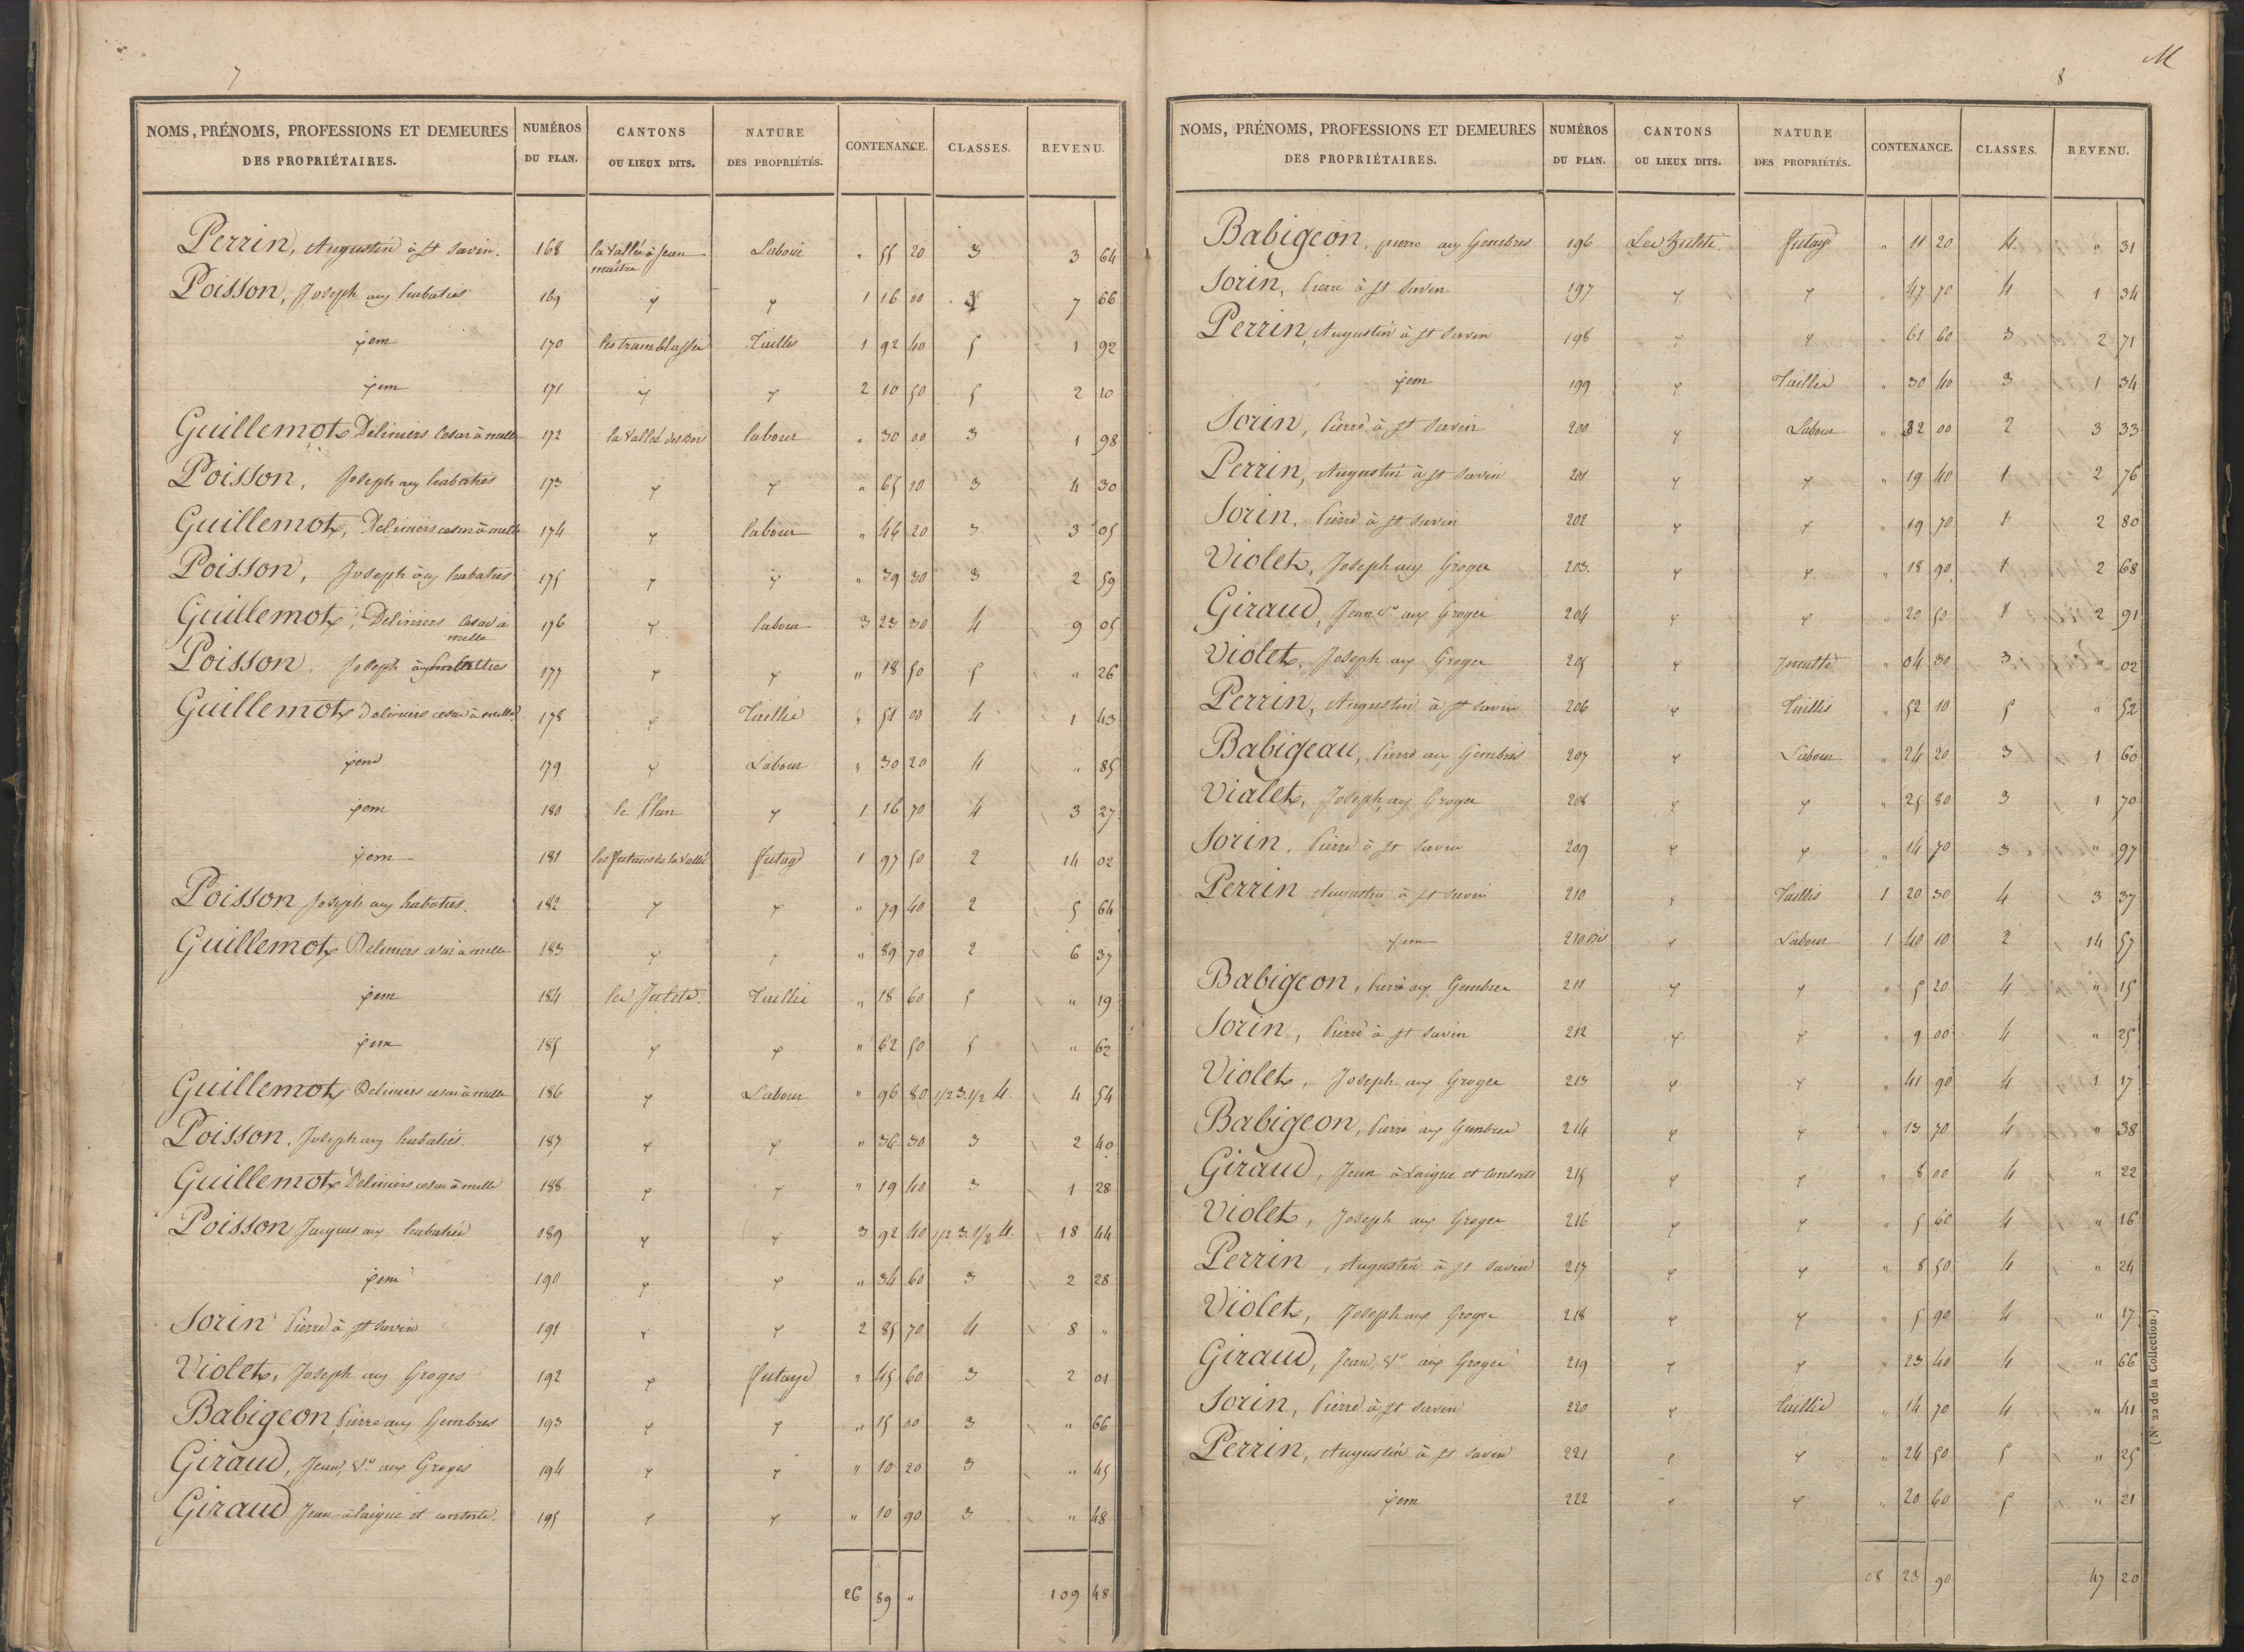 7
NOMS, PRÉNOMS, PROFESSIONS ET DEMEURES DES PROPRIÉTAIRES. NUMÉROS DU PLAN. CANTONS OU LIEUX DITS. NATURE DES PROPRIÉTÉS. CONTENANCE. CLASSES. REVENU.
Perrin, Augustin à St Savin. 168 la Vallée à Jean maitre Labour " 55 20 3 3 64
Poisson, Joseph aux 169 1 16 00 7 66
170 Taillis 1 92 40 5 1 92
171 2 10 50 5 2 10
Guillemot Deliniers Cesar à melle 172 la Vallée des Bois labour " 30 00 3 1 98
Poisson, Joseph aux 173 " 65 10 3 4 30
Guillemot, Deliniers cesar à melle 174 labour " 46 20 3 3 05
Poisson, Joseph aux 175 " 39 30 3 2 59
Guillemot, Deliniers Cesar à melle 176 labour 3 23 30 4 9 05
Poisson, Joseph 177 " 18 50 5 " 26
Guillemot Deliniers cesar à melle 178 Taillie " 51 00 4 1 43
179 Labour " 30 20 4 " 85
180 le Plan 1 16 70 4 3 27
181 les futaies de la Vallée futaye 1 97 50 2 14 02
Poisson Joseph aux 182 " 79 40 2 5 64
Guillemot Deliniers cesar à melle 183 " 89 70 2 6 37
184 Taillie " 18 60 5 " 19
185 " 62 50 5 " 62
Guillemot Deliniers cesar à melle 186 Labour " 96 80 1/2 3. 1/2 4. 4 54
Poisson, Joseph aux 187 " 36 30 3 2 40
Guillemot Deliniers cesar à melle 188 " 19 40 3 1 28
Poisson Jacques aux 189 3 92 40 1/2 3. 1/2 4. 18 44
190 " 34 60 3 2 28
Sorin Pierre à St Savin 191 2 85 70 4 8 "
Violet, Joseph aux Groges 192 futaye " 45 60 3 2 01
Babigeon Pierre aux Gembres 193 " 15 00 3 " 66
Giraud, Jean, Ve aux Groges 194 " 10 20 3 " 45
Giraud Jean à laigue et consorts. 195 " 10 90 3 " 48
26 89 " 109 48
M
8
NOMS, PRÉNOMS, PROFESSIONS ET DEMEURES DES PROPRIÉTAIRES. NUMÉROS DU PLAN. CANTONS OU LIEUX DITS. NATURE DES PROPRIÉTÉS. CONTENANCE. CLASSES. REVENU.
Babigeon, pierre aux Gembres 196 futaye " 11 20 4. " 31
Sorin, Pierre à St Savin 197 " 47 70 4 1 34
Perrin, Augustin à St Savin 198 " 61 60 3 2 71
199 Taillie " 30 40 3 1 34
Sorin, Pierre à St Savin 200 Labour " 32 00 2 3 33
Perrin, Augustin à St Savin 201 " 19 40 1 2 76
Sorin, Pierre à St Savin 202 " 19 70 1 2 80
Violet, Joseph aux Groges 203. " 18 90 1 2 68
Giraud, Jean Ve aux Groges 204 " 20 50 1 2 91
Violet, Joseph aux Groges 205 " 04 30 3 " 02
Perrin, Augustin à St Savin 206 Taillis " 52 10 5 " 52
Babigeau, Pierre aux Gembres 207 Labour " 24 20 3 1 60
Vialet, Joseph aux Groges 208 " 25 80 3 1 70
Sorin, Pierre à St Savin 209 " 14 70 3 " 97
Perrin Augustin à St Savin 210 Taillis 1 20 30 4 3 37
210 bis Labour 1 40 10 2 14 57
Babigeon, Pierre aux Gembres 211 " 5 20 4 " 15
Sorin, Pierre à St Savin 212 " 9 00 4 " 25
Violet, Joseph aux Groges 213 " 41 90 4 1 17
Babigeon, Pierre aux Gembres 214 " 13 70 4 " 38
Giraud, Jean à Laigue et Consorts 215 " 8 00 4 " 22
Violet, Joseph aux Groges 216 " 5 60 4 " 16
Perrin, Augustin à St Savin 217 " 8 50 4 " 24
Violet, Joseph aux Groges 218 " 5 90 4 " 17
Giraud, Jean, Ve aux Groges 219 " 23 40 4 " 66
Sorin, Pierre à St Savin 220 taillie " 14 70 4 " 41
Perrin, Augustin à St Savin 221 " 24 50 5 " 25
222 " 20 60 5 " 21
08 23 90 47 20
(N° 22 de la Collection.)